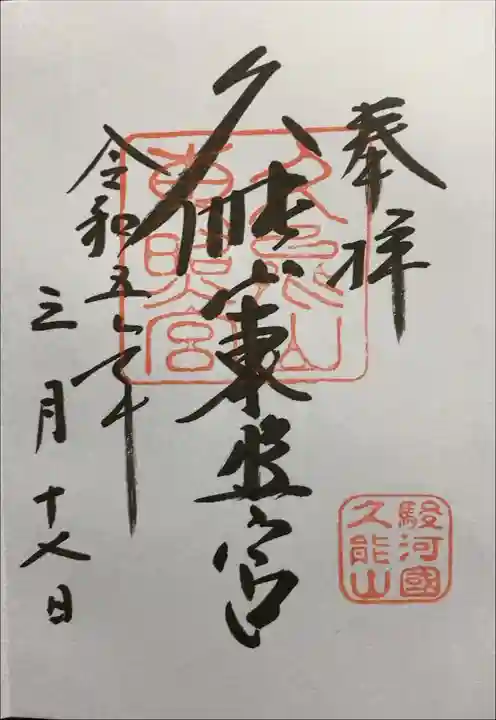 奉拝
久能山東照宮
令和五年
三月十七日
久能山
東照宮
駿河國
久能山